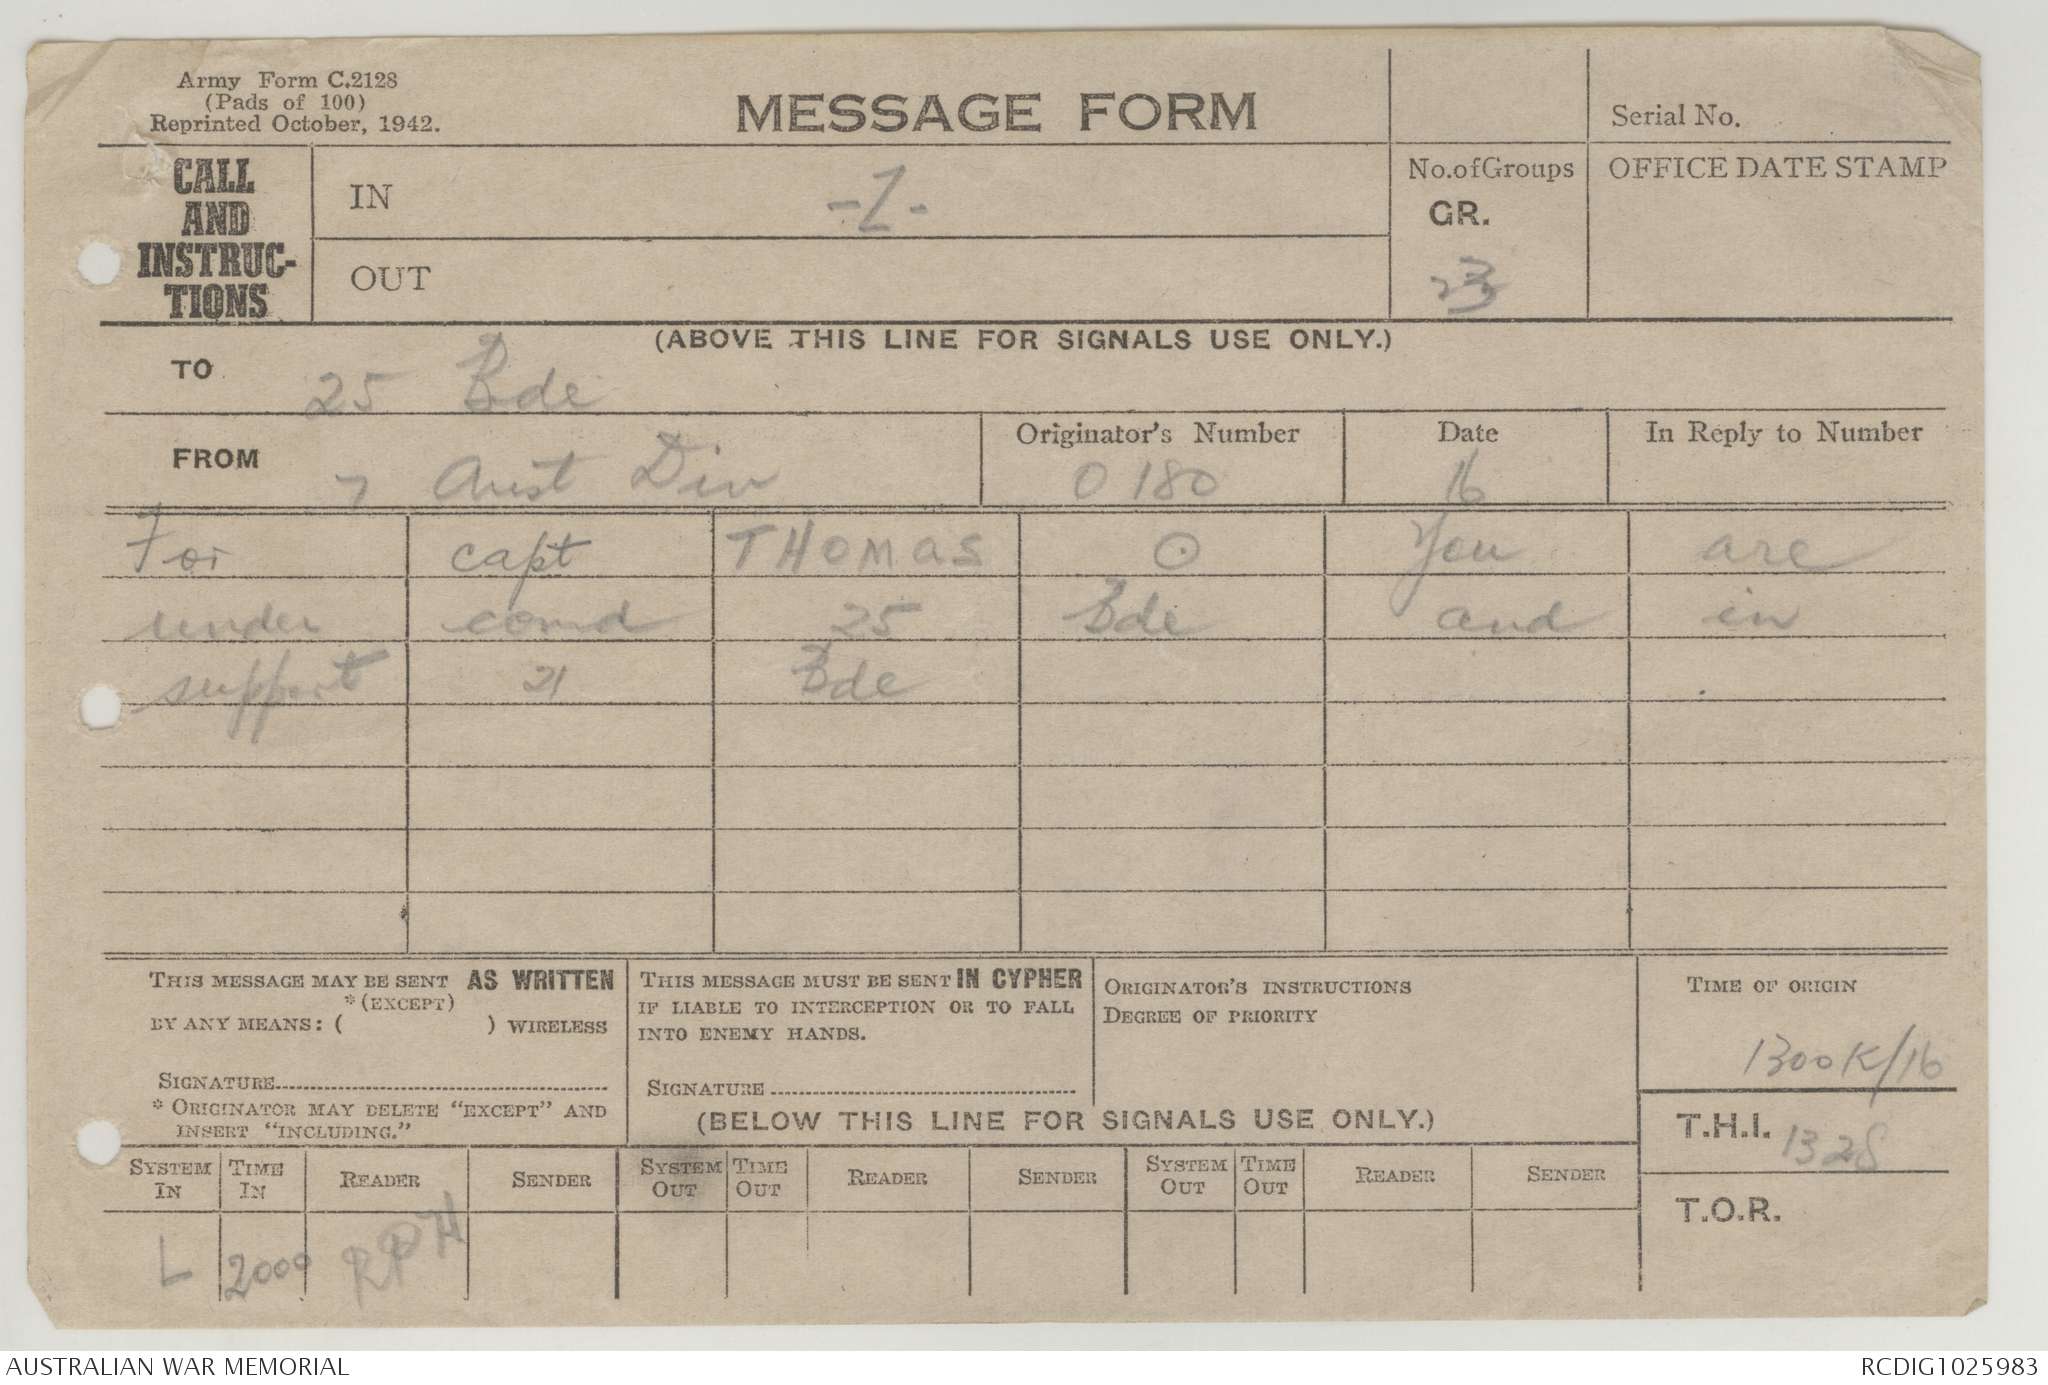 Army Form C.2128
(Pads of 100)
Reprinted October, 1942.
MESSAGE FORM
Serial No.
CALL
AND
INSTRUC-
TIONS
IN
-Z-
OUT
No.ofGroups
GR.
23
OFFICE DATE STAMP
(ABOVE THIS LINE FOR SIGNALS USE ONLY.)
TO 25 Bde
FROM 7 Aust Div
Originator's Number
O 180
Date
16
In Reply to Number
For capt THOMAS O You are
under comd 25 Bde and in
support 21 Bde
THIS MESSAGE MAY BE SENT AS WRITTEN
*(EXCEPT)
BY ANY MEANS: ( ) WIRELESS
SIGNATURE
* ORIGINATOR MAY DELETE "EXCEPT" AND
INSERT "INCLUDING."
THIS MESSAGE MUST BE SENT IN CYPHER
IF LIABLE TO INTERCEPTION OR TO FALL
INTO ENEMY HANDS.
SIGNATURE
ORIGINATOR'S INSTRUCTIONS
DEGREE OF PRIORITY
TIME OF ORIGIN
1300K/16
(BELOW THIS LINE FOR SIGNALS USE ONLY.)
T.H.I. 1328
T.O.R.
SYSTEM IN TIME IN READER SENDER SYSTEM OUT TIME OUT READER SENDER SYSTEM OUT TIME OUT READER SENDER
L 2000 RPH
AUSTRALIAN WAR MEMORIAL
RCDIG1025983